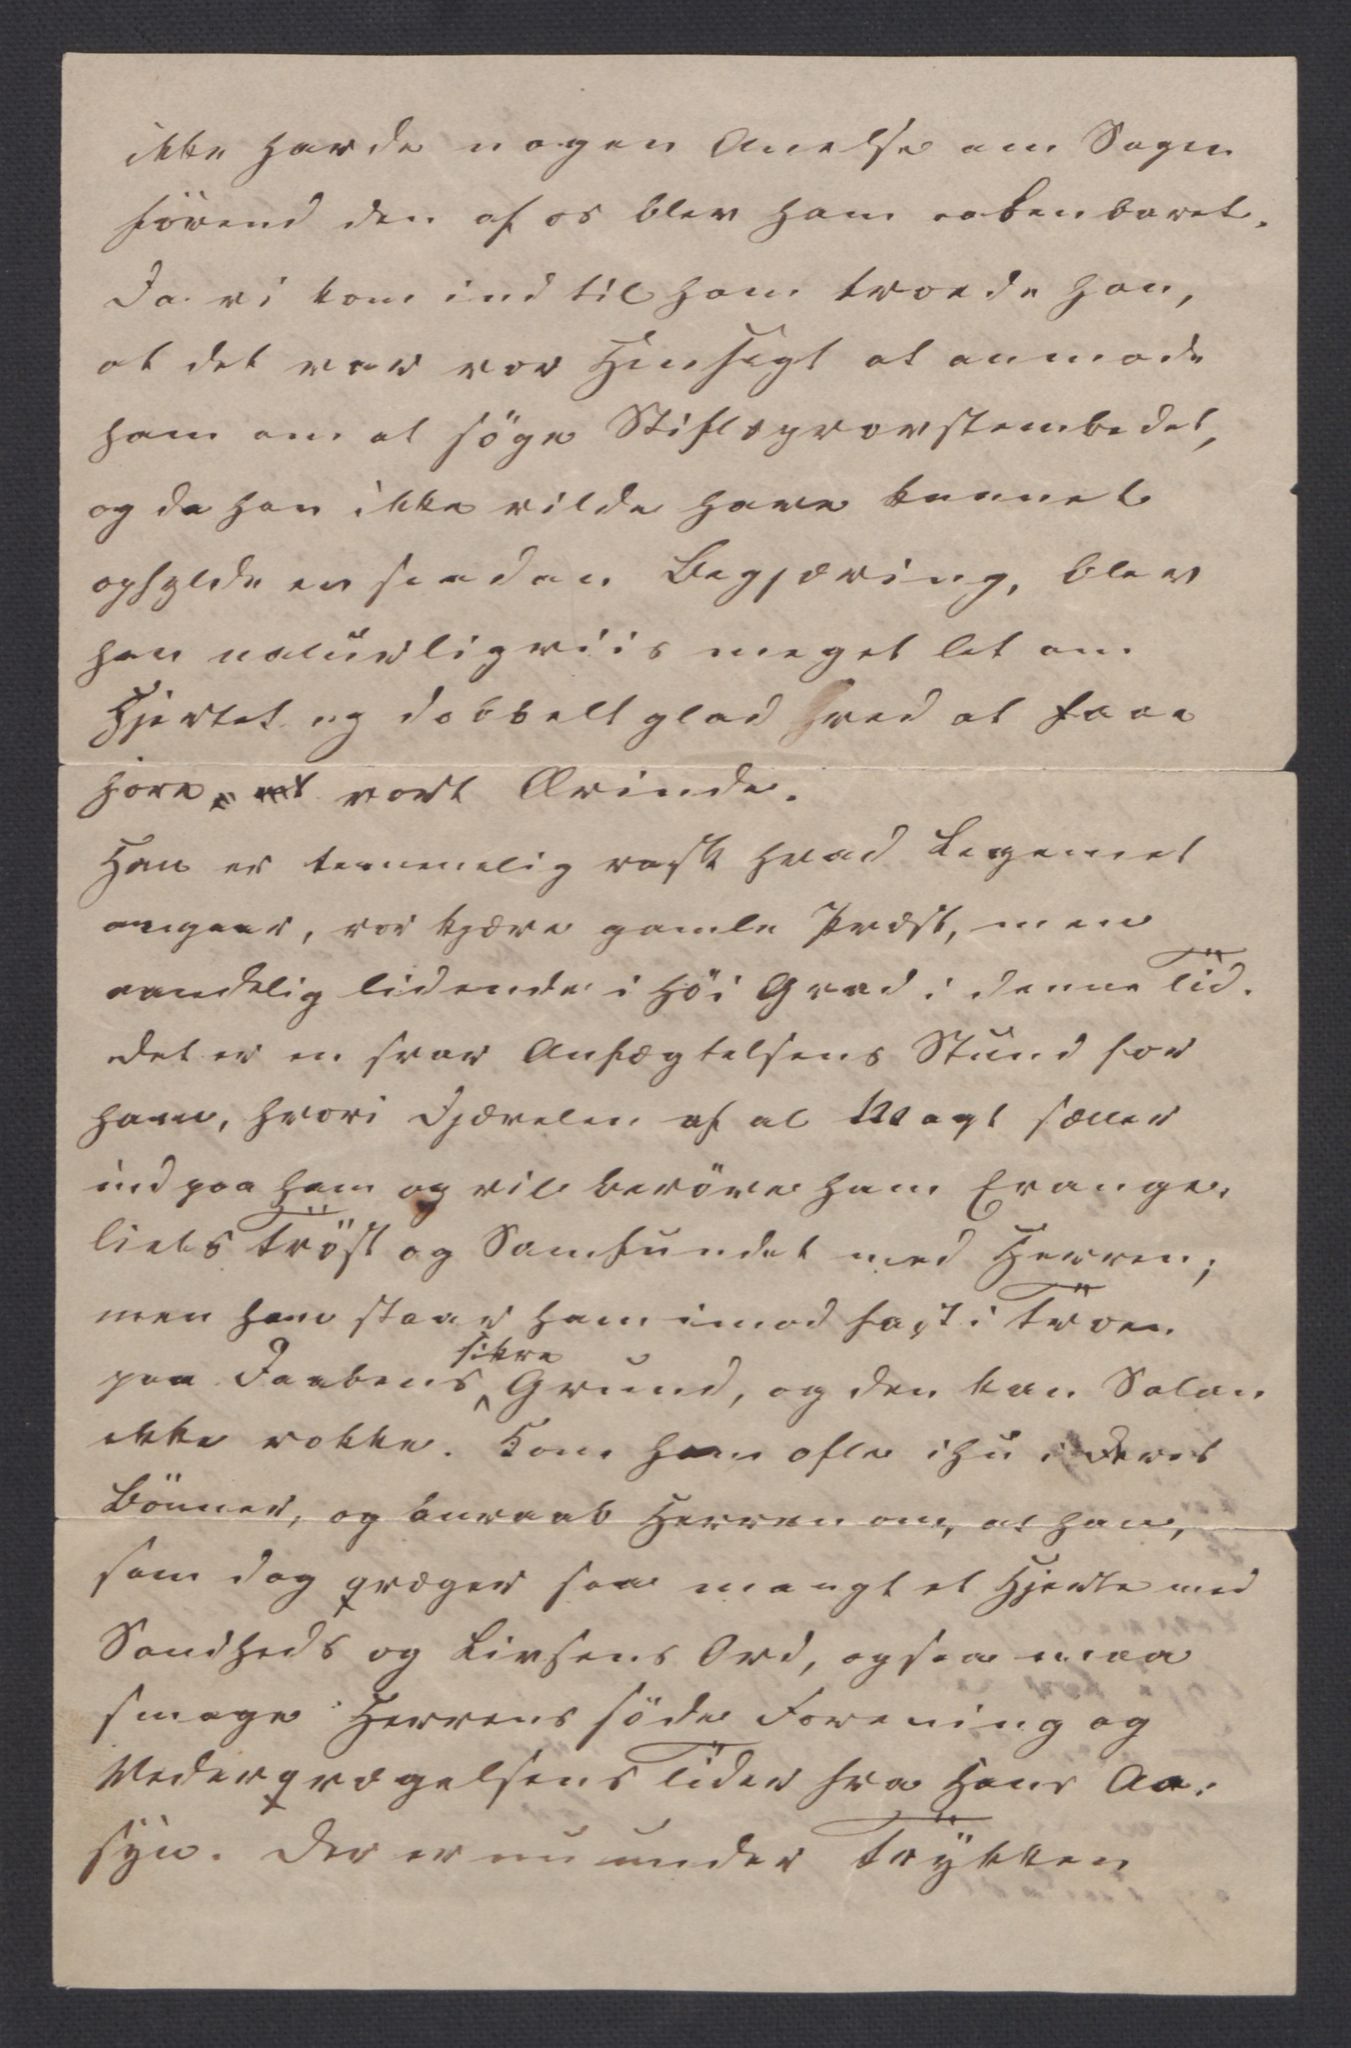 ikke havde nogen Anelse om Sagen
førend den af os blev ham aabenbaret.
Da vi kom ind til ham troede han,
at det var vor Hensigt at anmode
ham om at söge Stiftsprovstembedet,
og da han ikke vilde have kunnet
opfylde en saadan Begjæring, blev
han naturligviis meget let om
Hjertet og dobbelt glad ved at faae
höre vort Ærinde.
Han er temmelig rask hvad Legemet
angaaer, vor kjære gamle Præst, men
aandelig lidende i höi Grad i denne Tid.
Det er en svar Anfægtelsens Stund for
ham, hvori Djævelen af al Magt sætter
ind paa ham og vil beröve ham Evange-
liets Tröst og Samfundet med Herren;
men han staar ham imod fast i Troen
paa Daabens sikre Grund, og den kan Satan
ikke rokke. Kom ham ofte ihu i Deres
Bönner, og anraab Herren om, at han,
som dog qvæger saa mangt et Hjerte med
Sandheds og Livsens Ord, ogsaa maa
smage Herrens söde Forening og
Vederqvægelsens Tider fra Hans Aa-
syn. Der er nu under Trykken